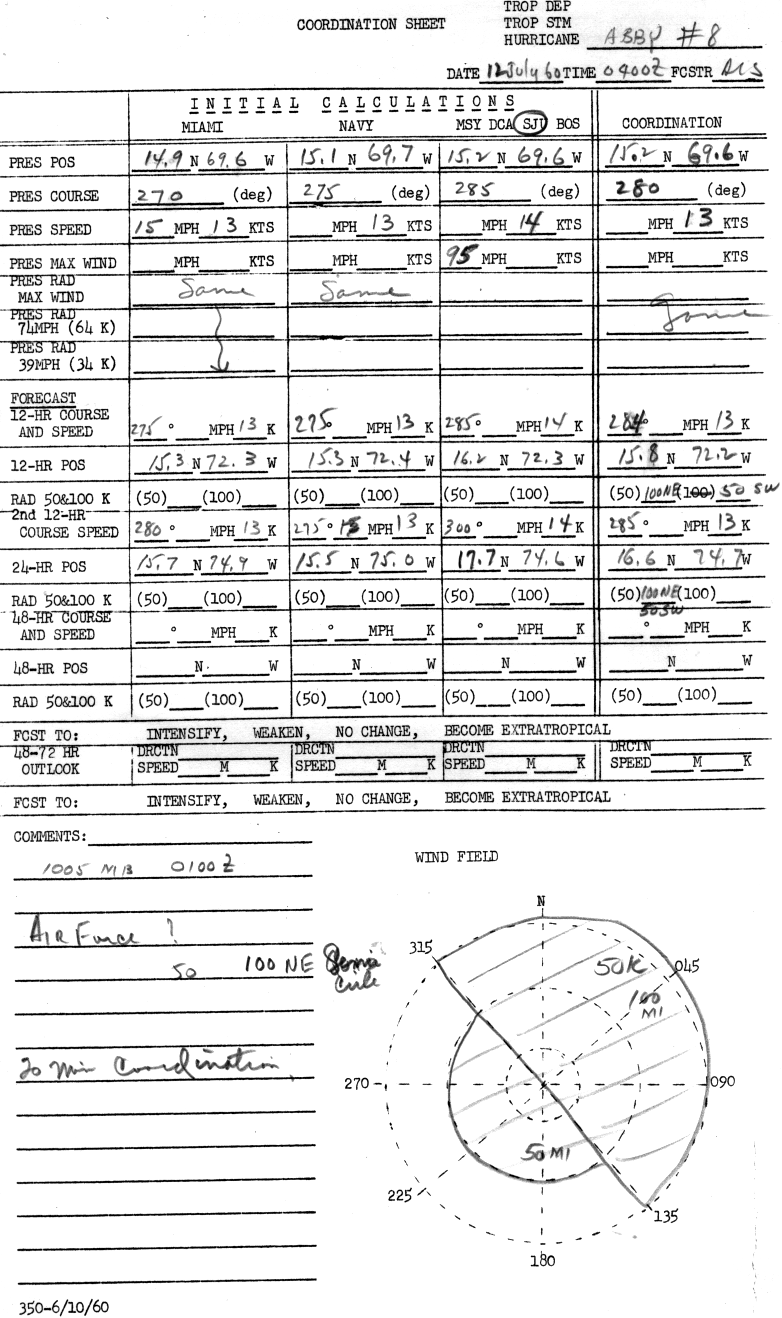 TROP DEP
COORDINATION SHEET TROP STM
HURRICANE ABBY #8
DATE 12 July 60 TIME 0400Z FCSTR
INITIAL CALCULATIONS
MIAMI NAVY MSY DCA SJU BOS COORDINATION
PRES POS 14.9 N 69.6 W 15.1 N 69.7 W 15.2 N 69.6 W 15.2 N 69.6 W
PRES COURSE 270 (deg) 275 (deg) 285 (deg) 280 (deg)
PRES SPEED 15 MPH 13 KTS MPH 13 KTS MPH 14 KTS MPH 13 KTS
PRES MAX WIND MPH KTS MPH KTS 95 MPH KTS MPH KTS
PRES RAD
MAX WIND Same Same
PRES RAD
74MPH (64 K) Same
PRES RAD
39MPH (34 K)
FORECAST
12-HR COURSE
AND SPEED 275° MPH 13 K 275° MPH 13 K 285° MPH 14 K 284° MPH 13 K
12-HR POS 15.3 N 72.3 W 15.3 N 72.4 W 16.2 N 72.3 W 15.8 N 72.2 W
RAD 50&100 K (50) (100) (50) (100) (50) (100) (50) 100NE (100) 50 SW
2nd 12-HR
COURSE SPEED 280° MPH 13 K 275° MPH 13 K 300° MPH 14 K 285° MPH 13 K
24-HR POS 15.7 N 74.9 W 15.5 N 75.0 W 17.7 N 74.6 W 16.6 N 74.7 W
RAD 50&100 K (50) (100) (50) (100) (50) (100) (50) 100NE (100)
50SW
48-HR COURSE
AND SPEED ° MPH K ° MPH K ° MPH K ° MPH K
48-HR POS N W N W N W N W
RAD 50&100 K (50) (100) (50) (100) (50) (100) (50) (100)
FCST TO: INTENSIFY, WEAKEN, NO CHANGE, BECOME EXTRATROPICAL
48-72 HR DRCTN DRCTN DRCTN DRCTN
OUTLOOK SPEED M K SPEED M K SPEED M K SPEED M K
FCST TO: INTENSIFY, WEAKEN, NO CHANGE, BECOME EXTRATROPICAL
COMMENTS:
1005 MB 0100Z
AIR Force ?
50 100 NE Semi
Circle
20 min Coordination
WIND FIELD
N
315
50K
045
100
MI
270
090
50 MI
225
135
180
350-6/10/60